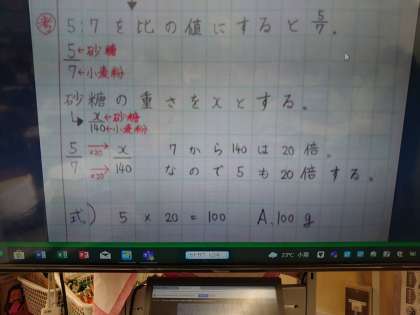 考 5:7 を比の値にすると 5/7。
5←砂糖
7←小麦粉
砂糖の重さをxとする。
x←砂糖
140←小麦粉
5/7 ×20→ ×20→ x/140 7から140は20倍。
なので5も20倍する。
式) 5 × 20 = 100 A.100g
23°C 小雨